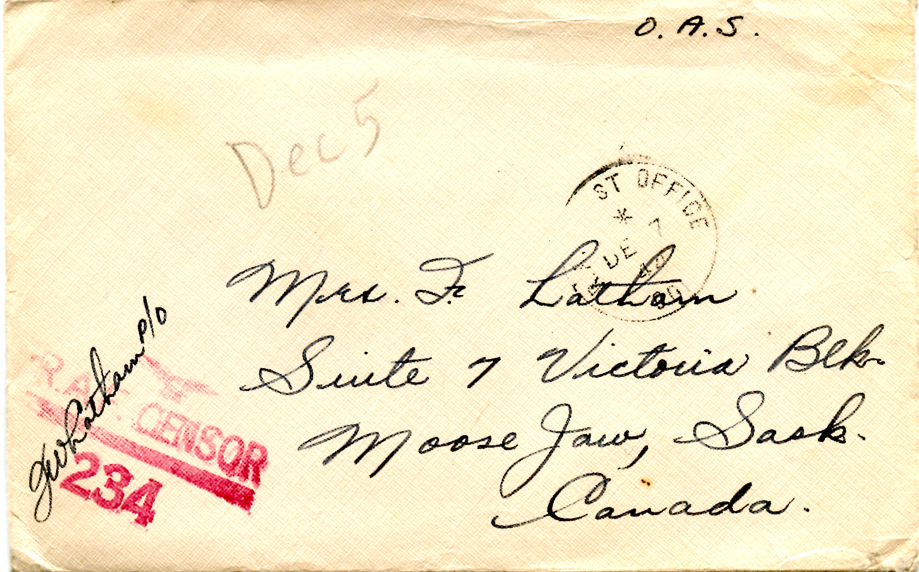 O. A. S.
Dec 5
ST OFFICE
* 
DE 7
Mrs. F. Latham
Suite 7 Victoria Blk.
Moose Jaw, Sask.
Canada.
Latham P/O
R.A.F. CENSOR
234